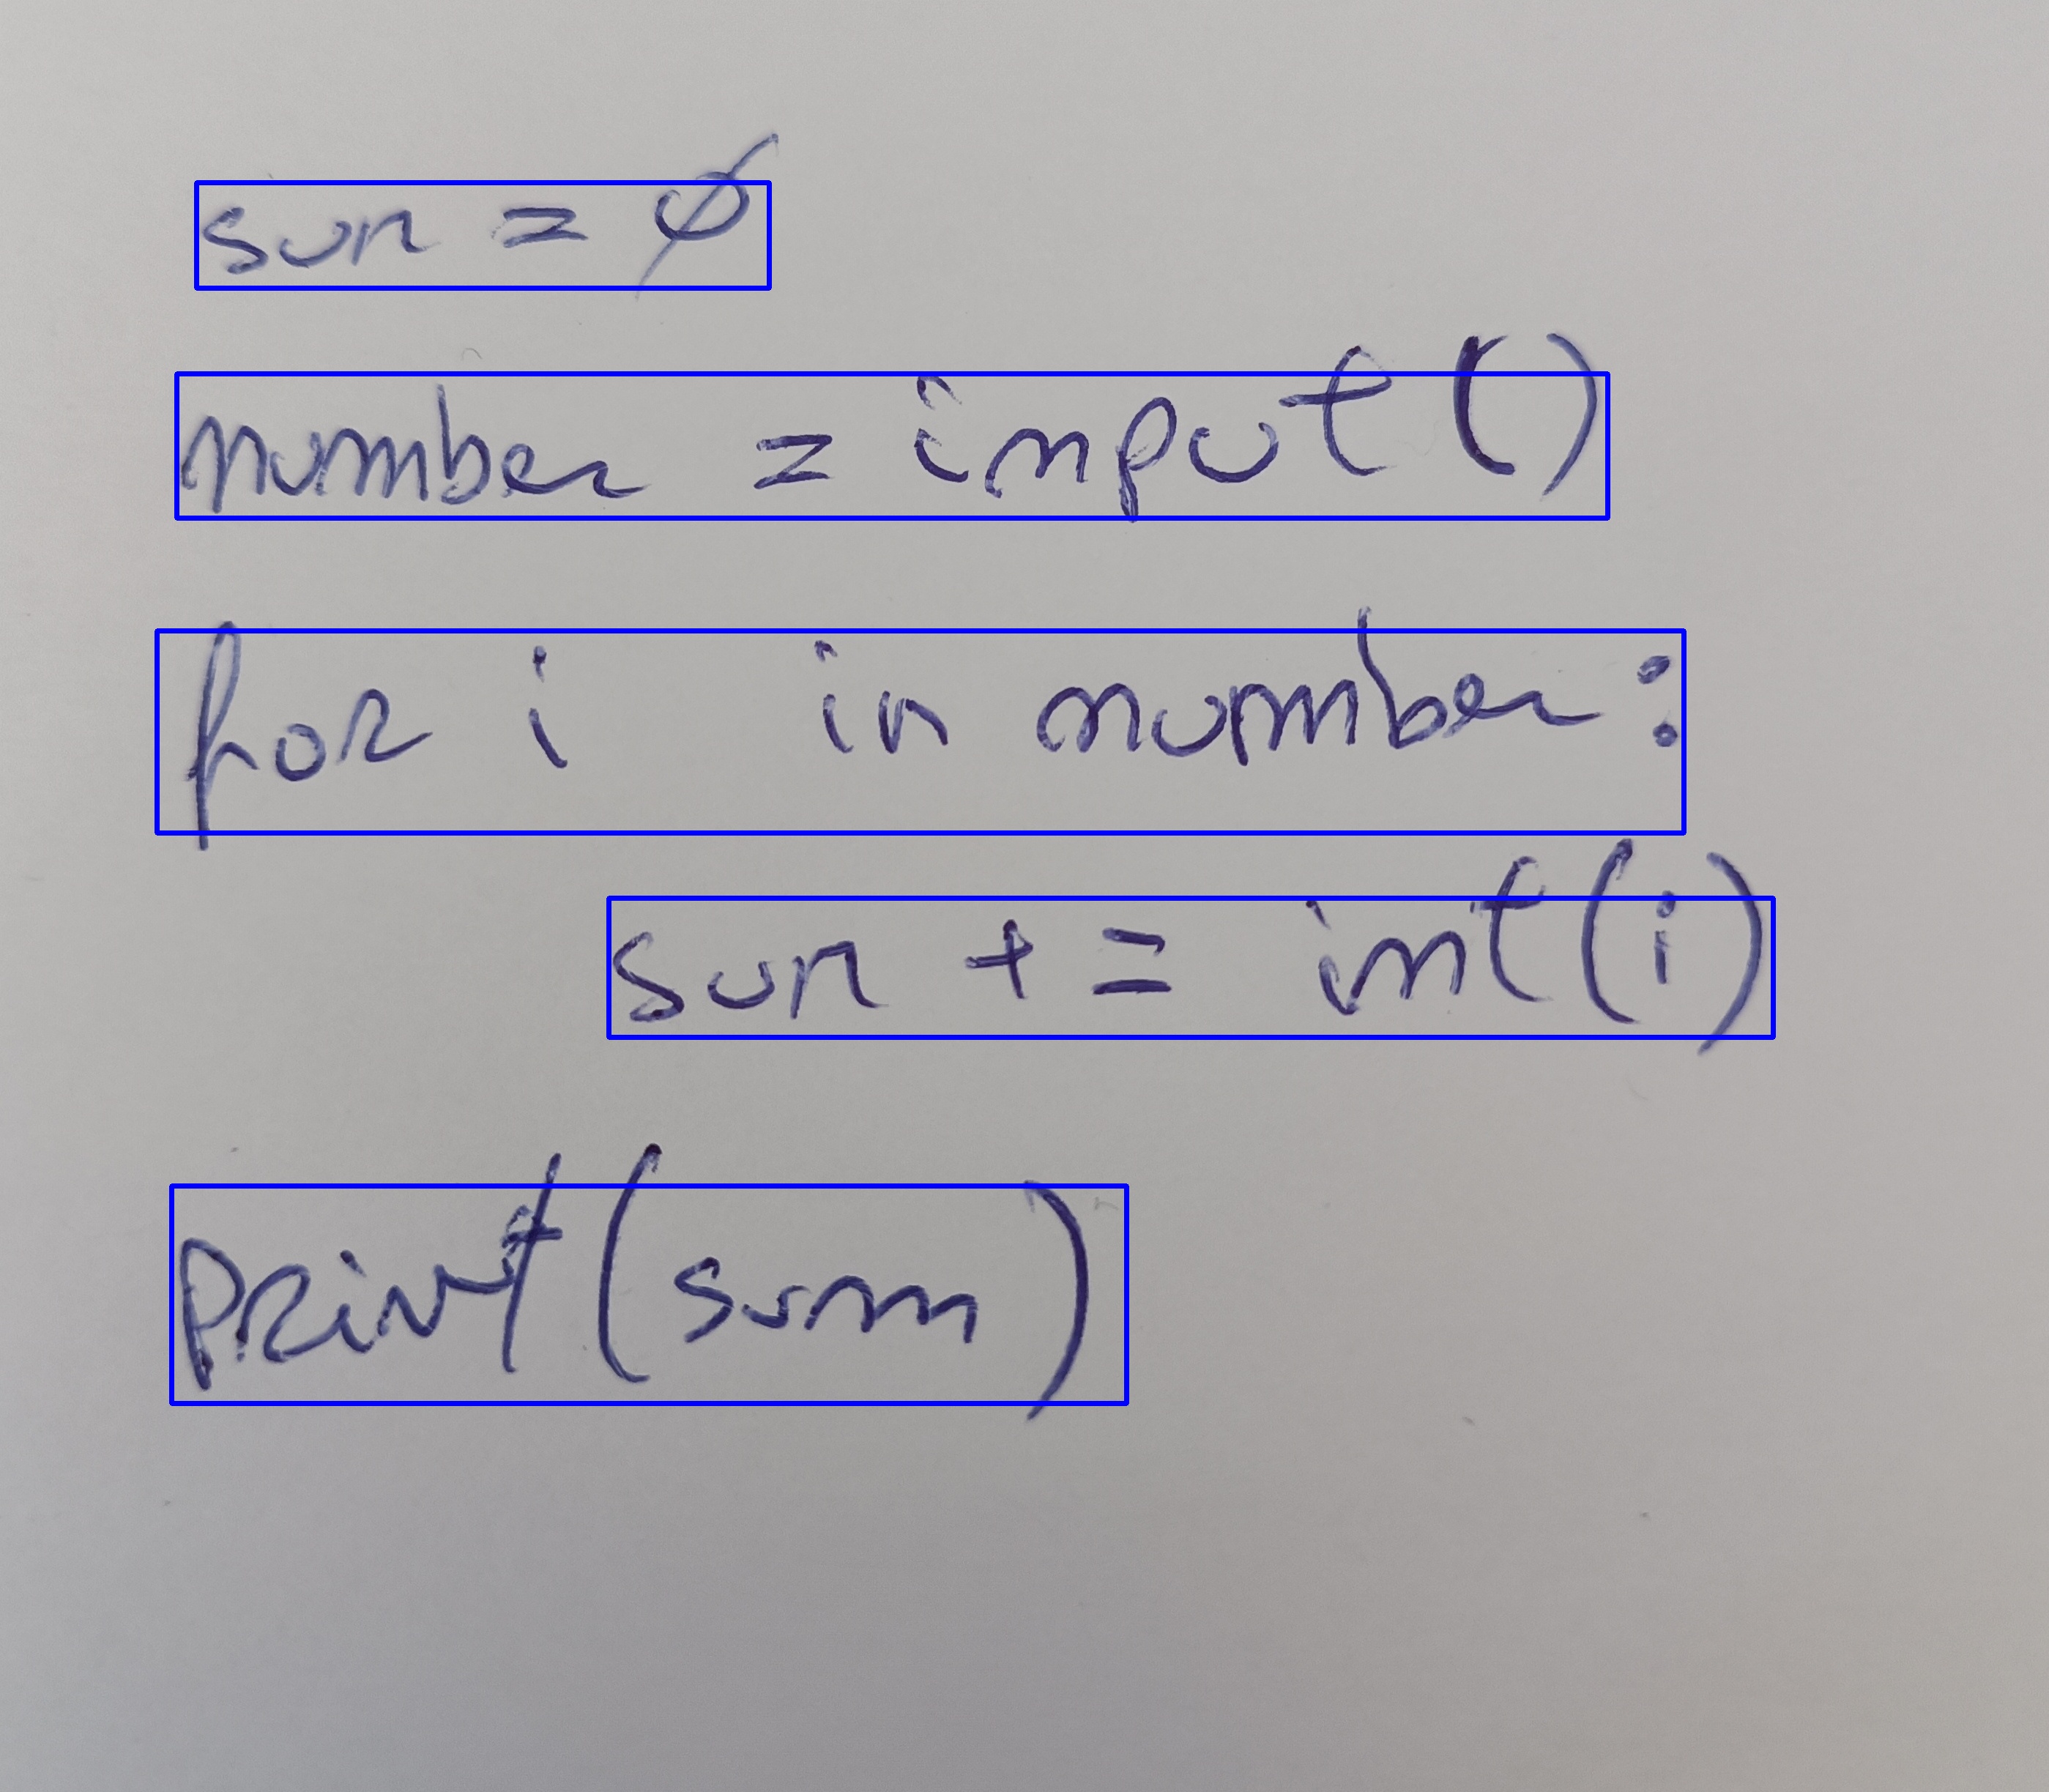 sun = 0
number = input()
for i in number:
sun += int(i)
print(sum)